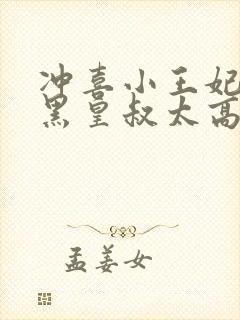 冲喜小王妃
黑皇叔太高
孟姜女